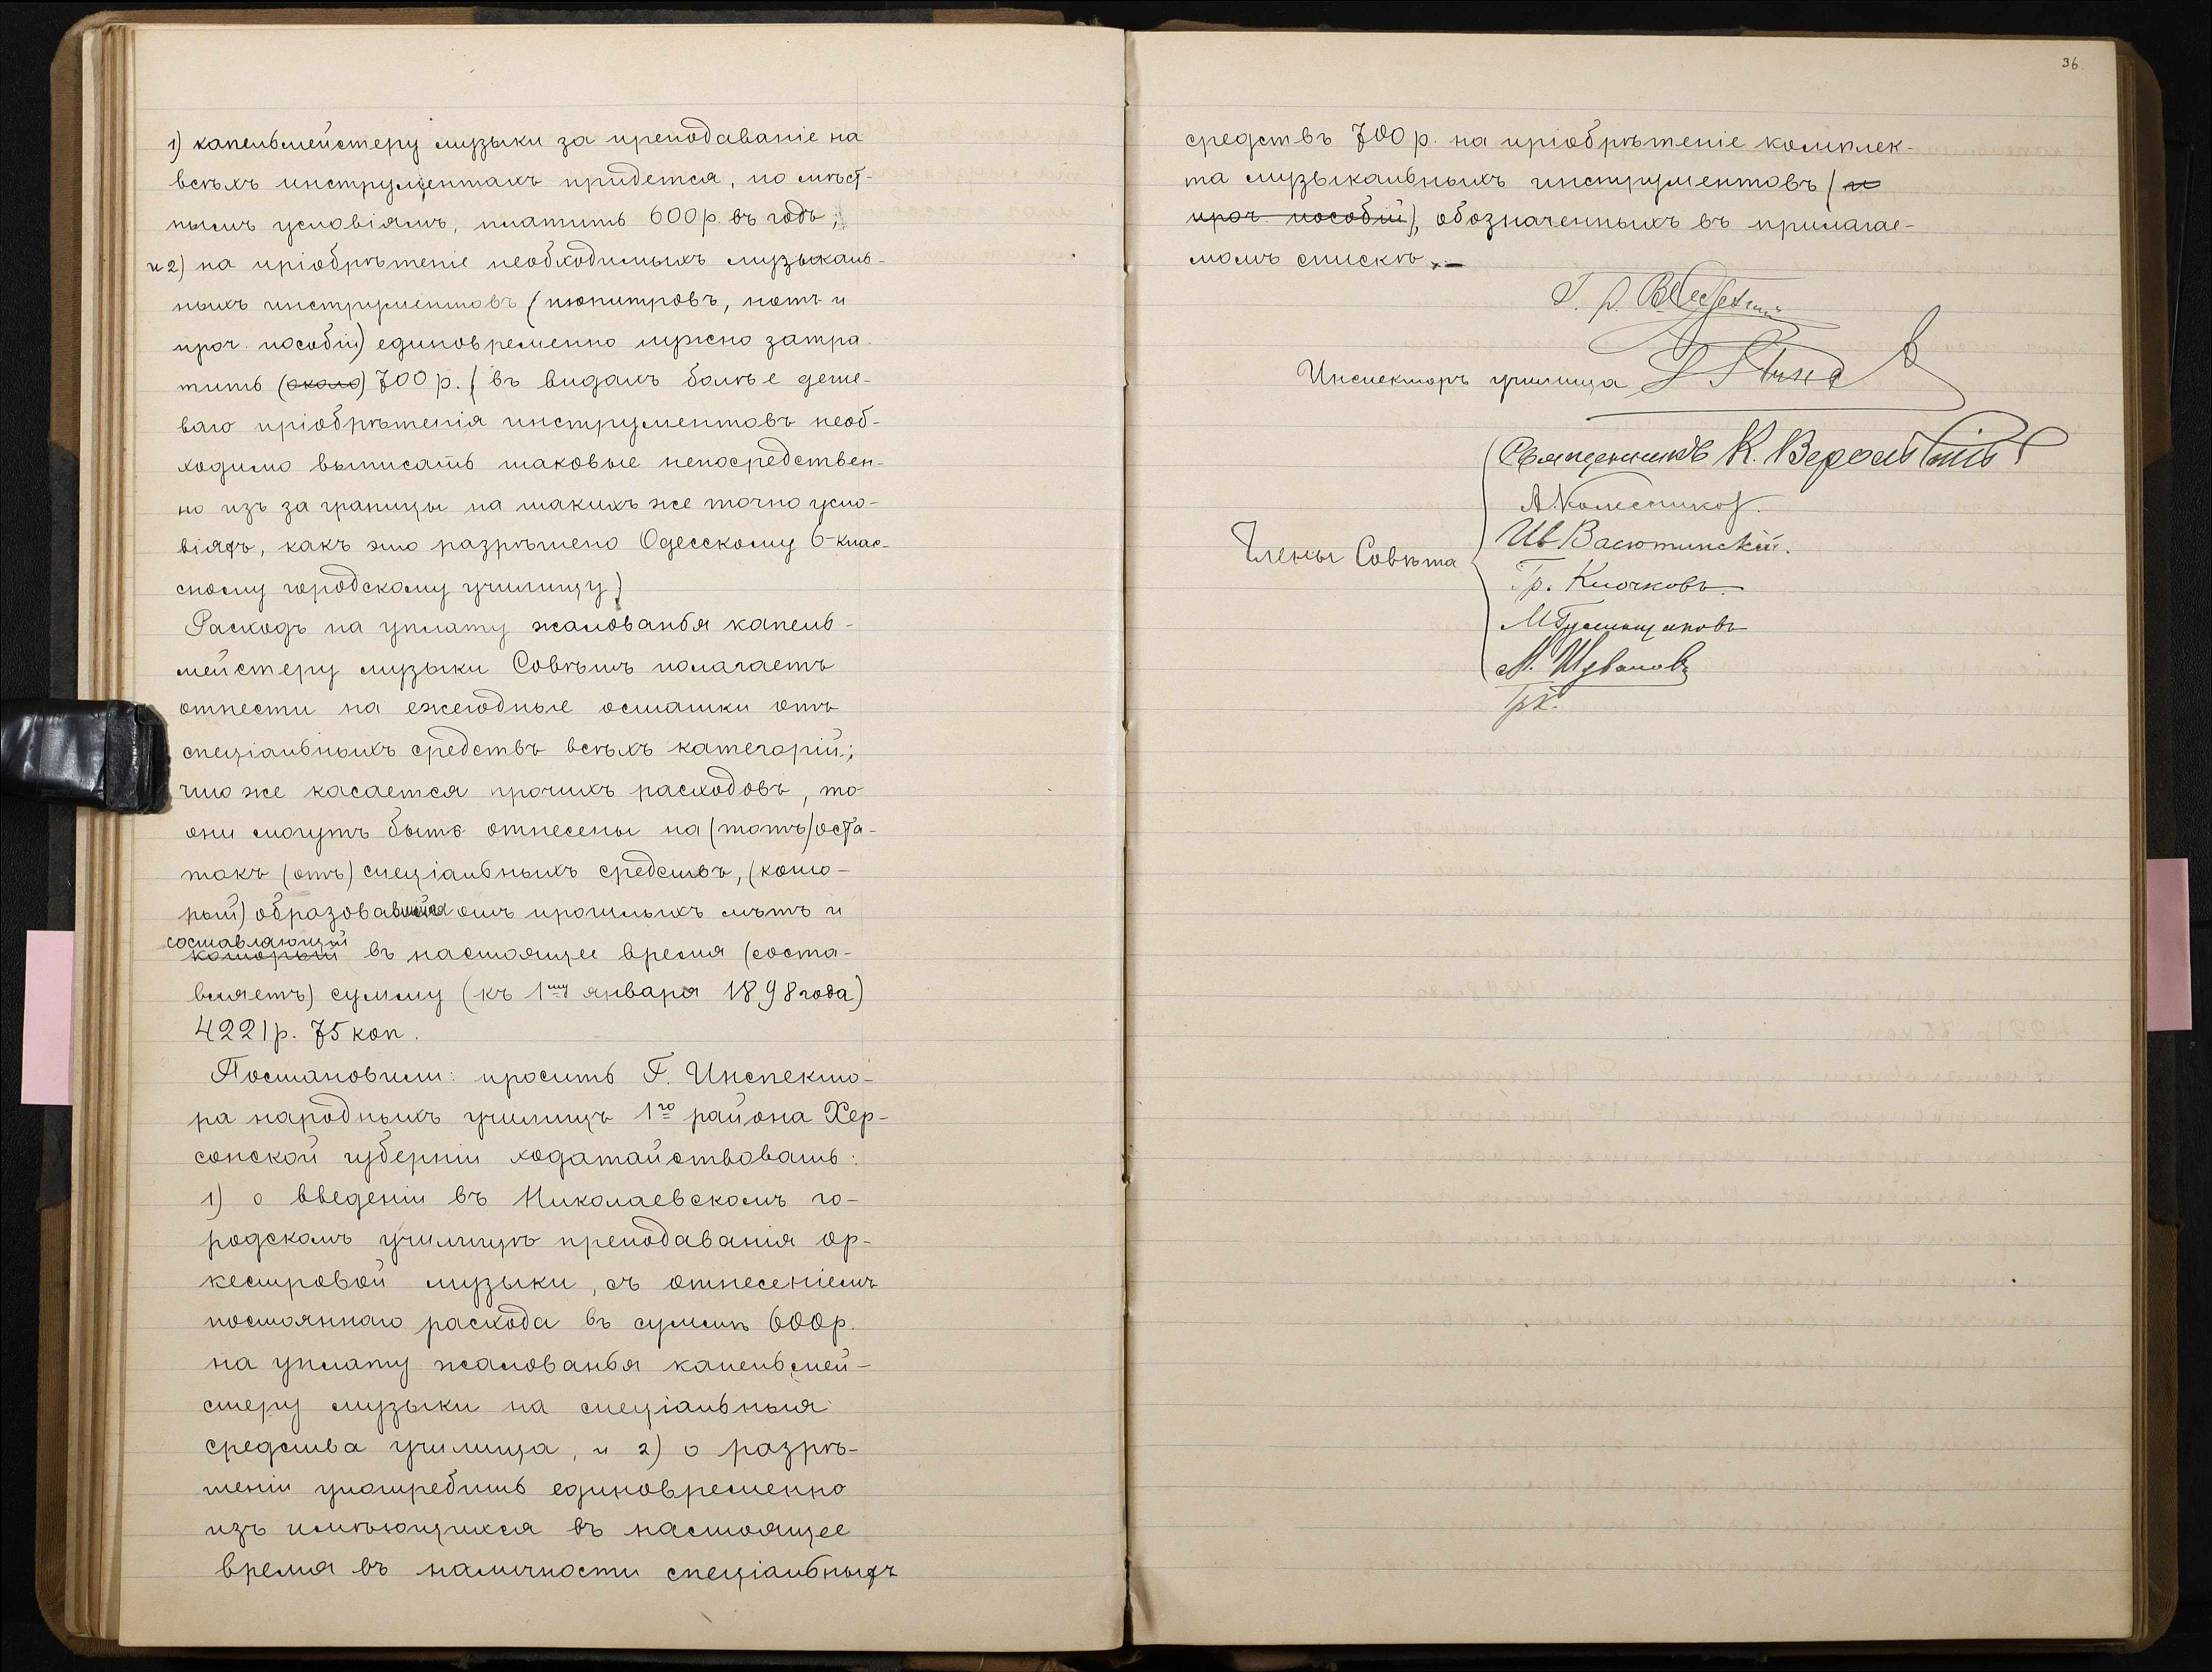 1) капельмейстеру музыки за преподаваніе на
всѣхъ инструментахъ придется, по мѣст-
нымъ условіямъ, платить 600 р. въ годъ;
и 2) на пріобрѣтеніе необходимыхъ музыкаль-
ныхъ инструментовъ (пюпитровъ, нотъ и
проч. пособій) единовременно нужно затра-
тить (около) 700 р. (въ видахъ болѣе деше-
ваго пріобрѣтенія инструментовъ необ-
ходимо выписать таковые непосредствен-
но изъ за границы на такихъ же точно усло-
віяхъ, какъ это разрѣшено Одесскому 6-клас-
сному городскому училищу)
Расходъ на уплату жалованья капель-
мейстеру музыки Совѣтъ полагаетъ
отнести на ежегодные остатки отъ
спеціальныхъ средствъ всѣхъ категорій;
что же касается прочихъ расходовъ, то
они могутъ быть отнесены на (тотъ) оста-
токъ (отъ) спеціальныхъ средствъ, (кото-
рый) образовавшійся отъ прошлыхъ лѣтъ и
составляющій
который въ настоящее время (соста-
вляетъ) сумму (къ 1му января 1898 года)
4221 р. 75 коп.
Постановили: просить Г. Инспекто-
ра народныхъ училищъ 1го района Хер-
сонской губерніи ходатайствовать:
1) о введеніи въ Николаевскомъ го-
родскомъ училищѣ преподаванія ор-
кестровой музыки, съ отнесеніемъ
постояннаго расхода въ суммѣ 600 р.
на уплату жалованья капельмей-
стеру музыки на спеціальныя
средства училища, и 2) о разрѣ-
шеніи употребить единовременно
изъ имѣющихся въ настоящее
время въ наличности спеціальныхъ
36
средствъ 700 р. на пріобрѣтеніе комплек-
та музыкальныхъ инструментовъ (и
проч. пособій), обозначенныхъ въ прилагае-
момъ спискѣ.
Инспекторъ училища
Священникъ К.
А. Колесников.
Члены Совѣта
Ив Васютинскій.
Гр. Клочковъ.
М.
М.